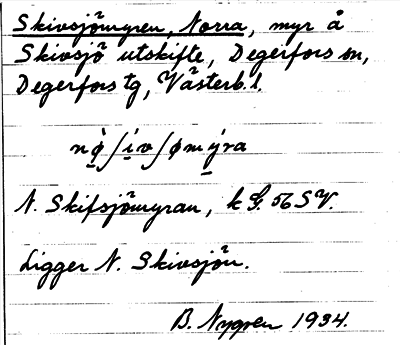 Skivsjömyren, Norra, myr å
Skivsjö utskifte, Degerfors sn,
Degerfors tg, Västerb.l.
N. Skifsjömyran, k G. 56 SV.
Ligger N. Skivsjön.
B. Nygren 1934.